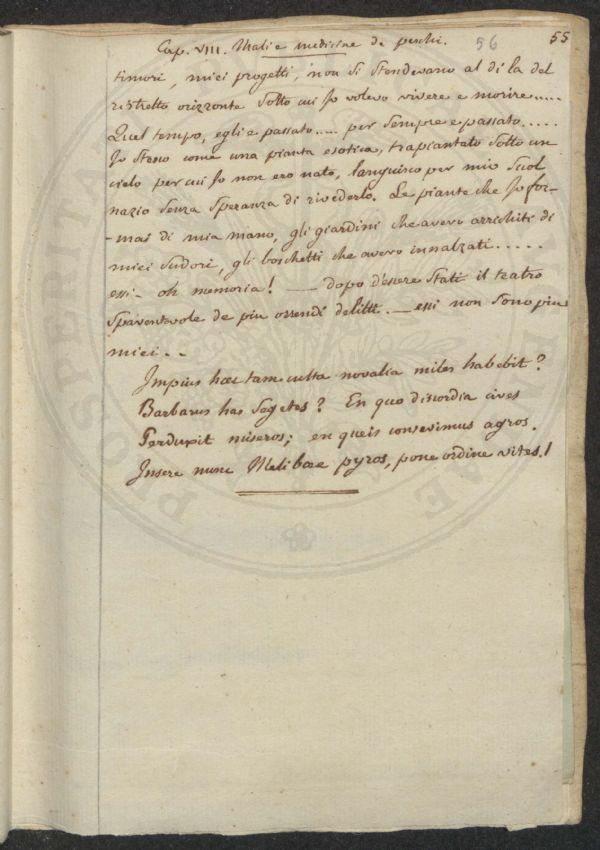 Cap. VIII. Mali e medicine de peschi. 56 55
timori, miei progetti, non si stendevano al di la del
ristretto orizzonte sotto cui Jo volevo vivere e morire.....
Quel tempo, egli e passato..... per sempre e passato.....
Jo stesso come una pianta esotica, trapiantato sotto un
cielo per cui Jo non ero nato, languisco per mio suol
nazio senza speranza di rivederlo. Le piante che Jo for-
-mai di mia mano, gli giardini che avevo arrichiti di
miei sudori, gli boschetti che avevo innalzati.....
essi - oh memoria! — dopo d'essere stati il teatro
spaventevole de piu orrendi delitti. — essi non sono piu
miei..
Impius haec tam culta novalia miles habebit?
Barbarus has segetes? En quo discordia cives
Perduxit miseros; en queis consevimus agros.
Insere nunc Melibaee pyros, pone ordine vites.!